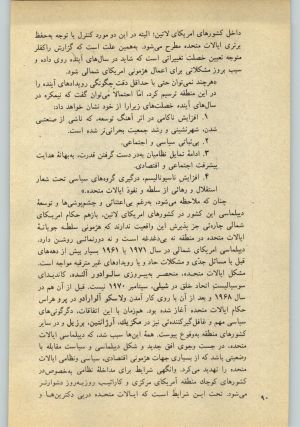 داخل کشورهای امریکای لاتین؛ البته در این دو مورد کنترل یا توجه به‌حفظ
برتری ایالات متحده مطرح می‌شود. به‌همین علت است که گزارش راکفلر
متوجه تعیین خصلت تغییراتی است که شاید در سال‌های آینده روی داده و
سبب بروز مشکلاتی برای اعمال هژمونی امریکای شمالی شود.
«هرچند نمی‌توان حتی با حداقل دقت چگونگی رویدادهای آینده را
در این منطقه ترسیم کرد. امّا احتمالاً می‌توان گفت که نیمکره در
سال‌های آینده خصلت‌های زیرا از خود نشان خواهد داد:
۱. افزایش ناکامی در اثر آهنگ توسعه، که ناشی از صنعتی
شدن، شهرنشینی و رشد جمعیت بحرانی‌تر شده است.
۲. بی‌ثباتی سیاسی و اجتماعی.
۳. ادامهٔ تمایل نظامیان به‌در دست گرفتن قدرت، به‌بهانهٔ هدایت
پیشرفت اجتماعی و اقتصادی.
۴. افزایش ناسیونالیسم، درگیری گروه‌های سیاسی تحت شعار
استقلال و رهائی از سلطه و نفوذ ایالات متحده.»
چنان که ملاحظه می‌شود، به‌رغم بی‌اعتنائی و چشم‌پوشی‌ها و توسعهٔ
دیپلماسی این کشور در کشورهای امریکای لاتین، بازهم حکام امریکای
شمالی چاره‌ئی جز پذیرش این واقعیت ندارند که هژمونی سلطه جویانهٔ
ایالات متحده در منطقه نه بی‌دغدغه است و نه دورنمائی روشن دارد.
دیپلماسی امریکای شمالی در سال ۱۹۷۱ یا ۱۹۶۱ بسیار بیش از دهه‌های
قبل با مسائل جدّی و مشکلات حاد و یا رویدادهای غیر مترقبه مواجه است.
مشکل ایالات متحده، منحصر به‌پیروزی سالوادور آلنده، کاندیدای
سوسیالیست اتحاد خلق در شیلی، سپتامبر ۱۹۷۰ نیست. قبل از آن هم در
سال ۱۹۶۸ و بعد از آن با روی کار آمدن ولاسکو آلوارادو در پرو هراس
حکام ایالات متحده آغاز شده بود. هم‌زمان با این اتفاقات، دگرگونی‌های
سیاسی مهم و غافل‌گیرکننده‌ئی نیز در مکزیک، آرژانتین، برزیل و در سایر
کشورهای منطقه به‌وقوع پیوست. همهٔ این‌ها سبب شد که دیپلماسی ایالات
متحده، در جست وجوی افق جدید و شکل دیپلماسی و سیاست مقابله با
وضعیتی باشد که از بسیاری جهات هژمونی اقتصادی، سیاسی ونظامی ایالات
متحده را تهدید می‌کرد. وانگهی شرایط برای مداخلهٔ نظامی به‌خصوص‌در
کشورهای کوچک منطقه امریکای مرکزی و کارائیب روزبه‌روز دشوارتر
می‌شود. تحت این شرایط است که ایالات متحده درپی دکترین‌ها و
۹۰